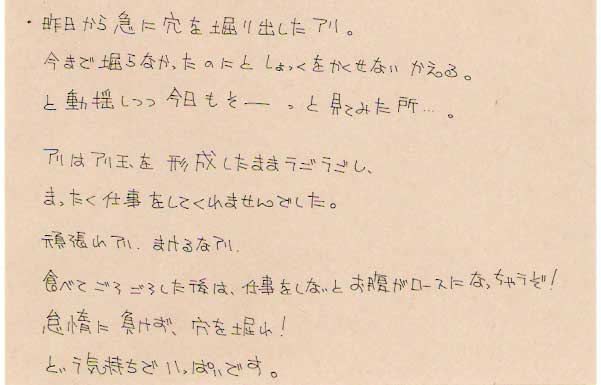 ・昨日から急に穴を掘り出したアリ。
今まで掘らなかったのにとしょっくをかくせないかえる。
と動揺しつつ今日もそーっと見てみた所…。
アリはアリ玉を形成したままうごうごし、
まったく仕事をしてくれませんでした。
頑張れアリ.まけるなアリ.
食べてごろごろした後は、仕事をしないとお腹がロースになっちゃうぞ!
怠惰に負けず、穴を掘れ!
という気持ちでいっぱいです。